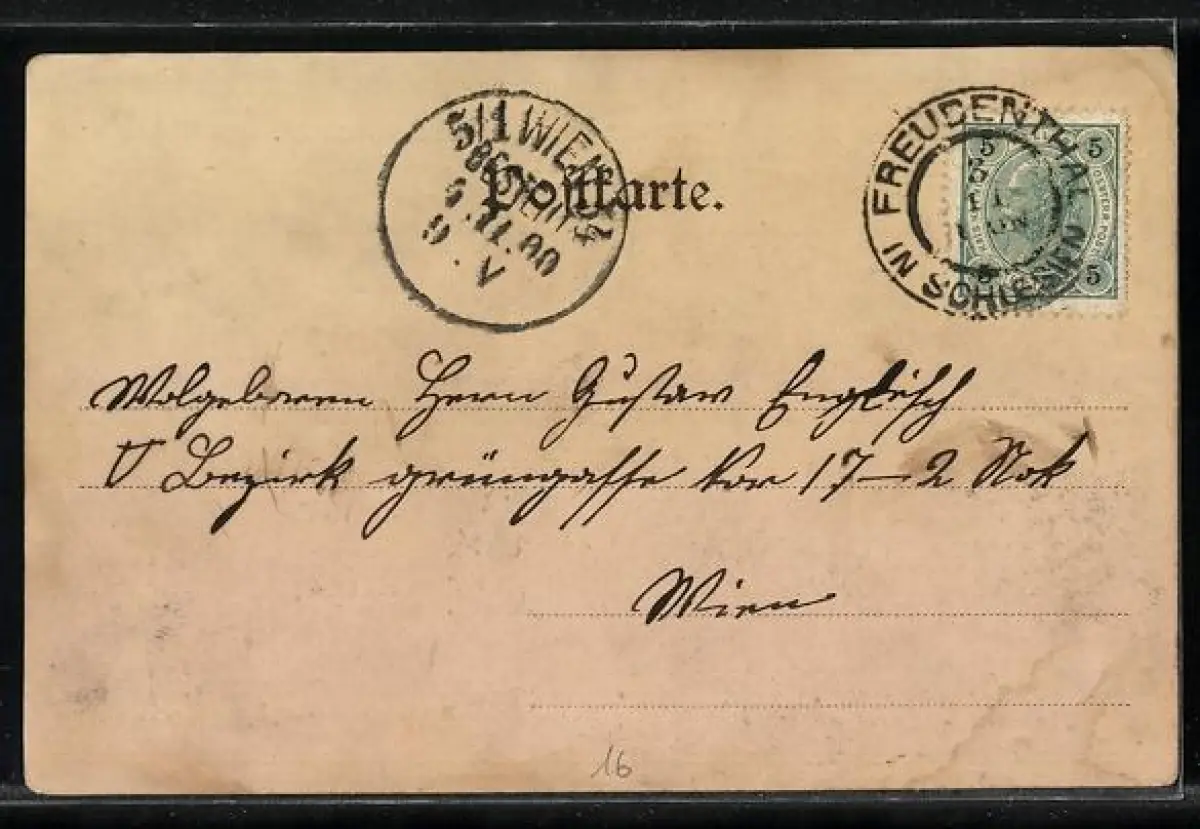 5/1 WIEN 54
BESTELLT
6.II.00
9.V
Postkarte.
FREUDENTHAL
IN SCHLESIEN
5 5
5 5
Wolgeboren Herrn Gustav Englisch
V Bezirk grüngasse Nor 17-2 Stok
Wien
16